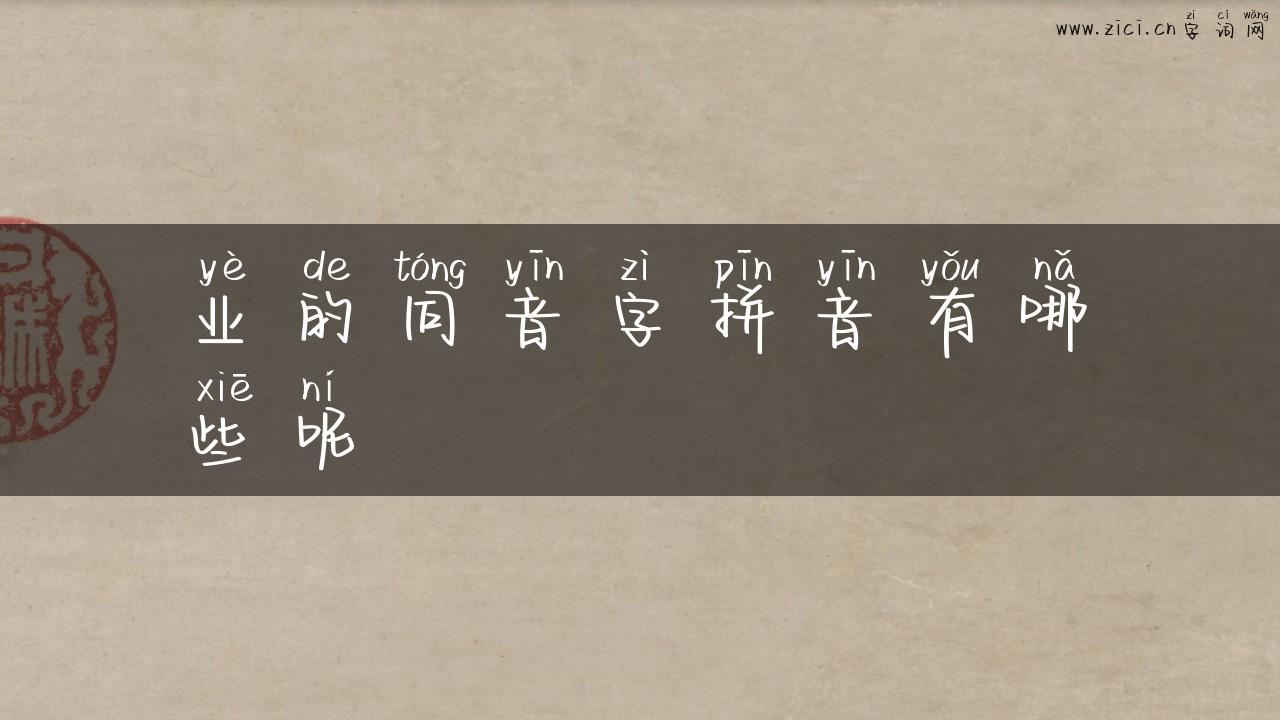 zì cí wǎng
www.zici.cn 字词网
yè de tóng yīn zì pīn yīn yǒu nǎ
业的同音字拼音有哪
xiē ní
些呢